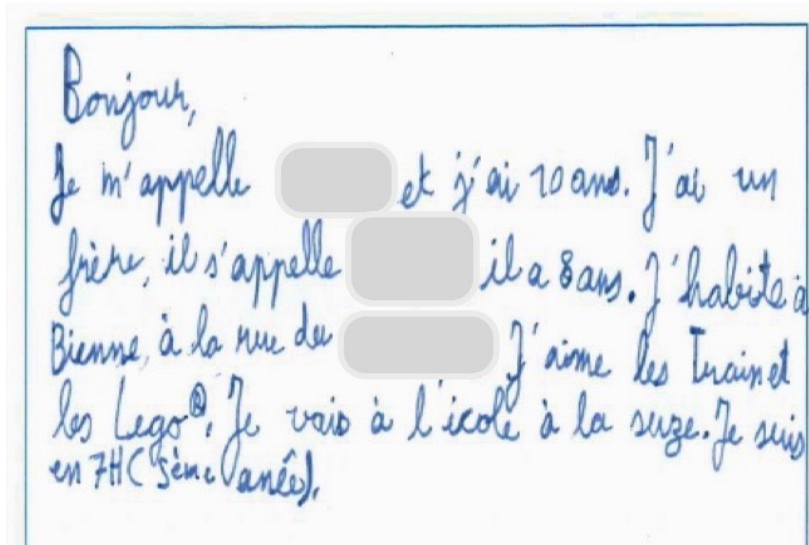 Bonjour,
Je m'appelle et j'ai 10 ans. J'ai un
frère, il s'appelle il a 8 ans. J'habite à
Bienne, à la rue du J'aime les Train et
les Lego®. Je vais à l'école à la suze. Je suis
en 7H (5ème anêe).